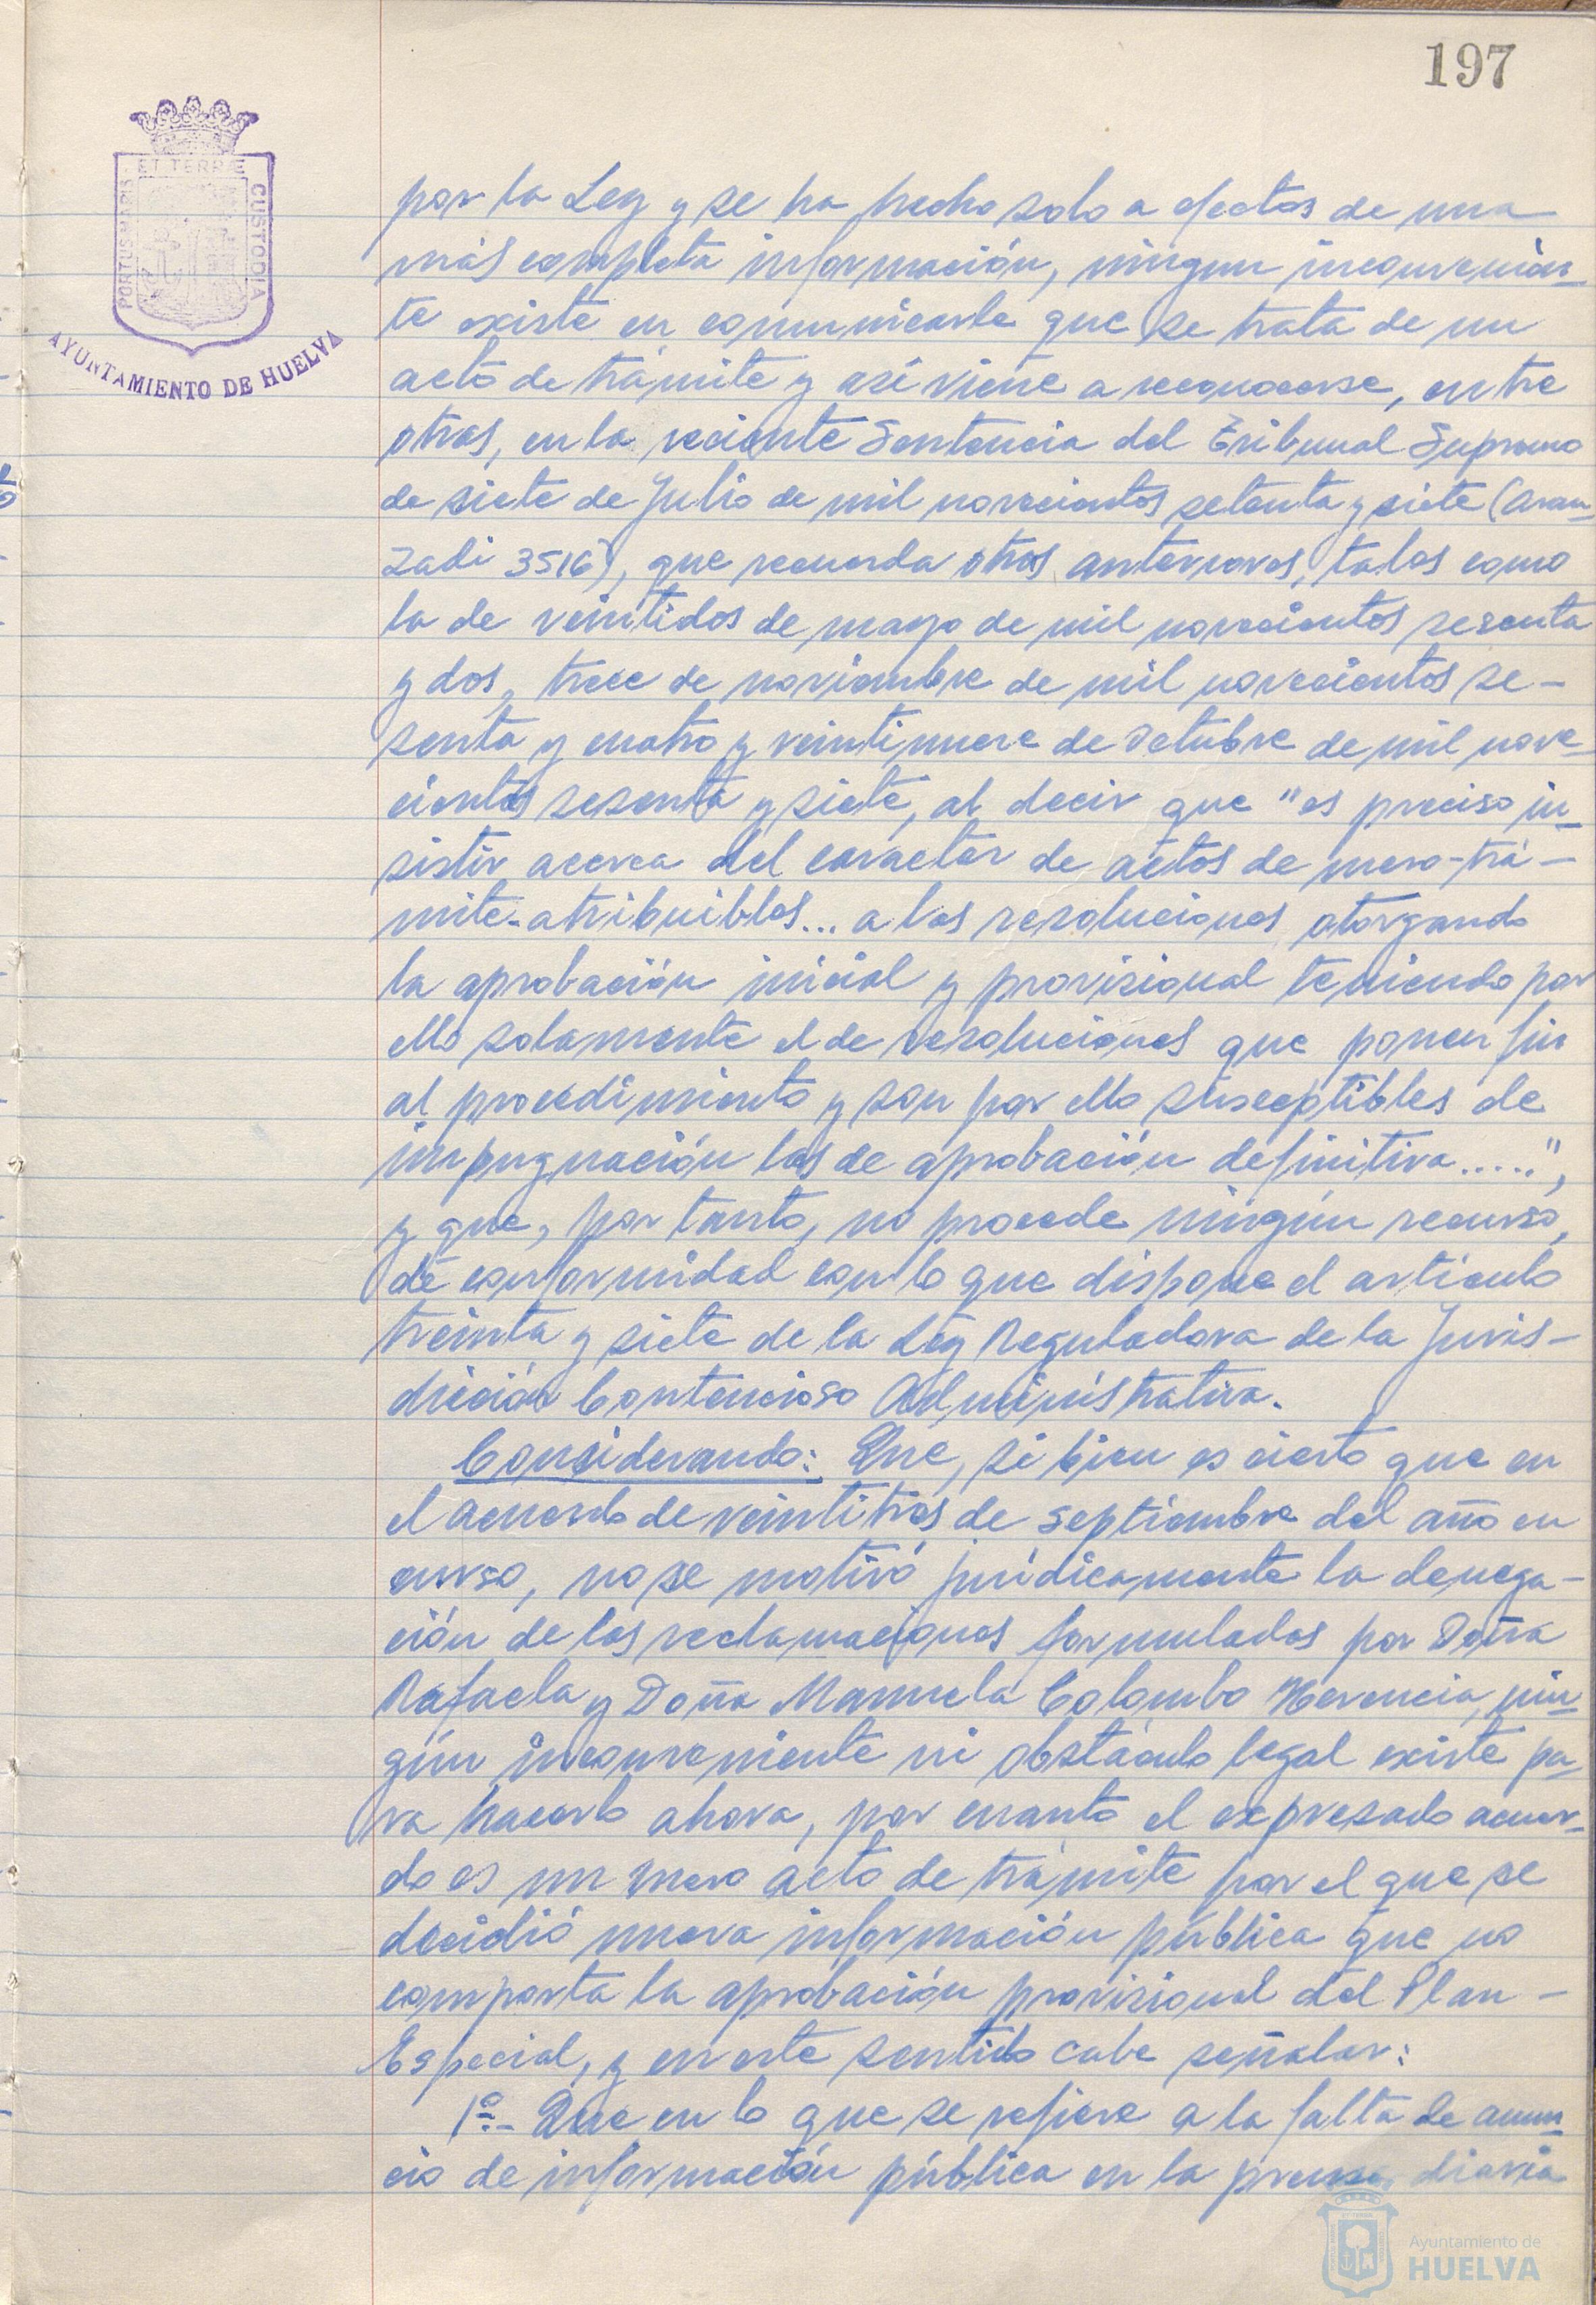 197
ET TERRÆ
PORTUS MARIS
CUSTODIA
AYUNTAMIENTO DE HUELVA
por la Ley y se ha hecho solo a efectos de una
más completa información, ningun inconvenien-
te existe en comunicarle que se trata de un
acto de trámite y así viene a reconocerse, entre
otras, en la reciente Sentencia del Tribunal Supremo
de siete de Julio de mil novecientos setenta y siete (Aran-
zadi 3516), que recuerda otros anteriores, tales como
la de veintidos de mayo de mil novecientos sesenta
y dos, trece de noviembre de mil novecientos se-
senta y cuatro y veintinueve de octubre de mil nove-
cientos sesenta y siete, al decir que "es preciso in-
sistir acerca del caracter de actos de mero-trá-
mite-atribuibles... a las resoluciones otorgando
la aprobación inicial y provisional teniendo por
ello solamente el de resoluciones que ponen fin
al procedimiento y son por ello susceptibles de
impugnación las de aprobación definitiva.....",
y que, por tanto, no procede ningún recurso,
de conformidad con lo que dispone el artículo
treinta y siete de la Ley Reguladora de la Juris-
dicción Contencioso Administrativa.
Considerando: Que, si bien es cierto que en
el acuerdo de veintitres de septiembre del año en
curso, no se motivó jurídicamente la denega-
ción de las reclamaciones formuladas por Doña
Rafaela y Doña Manuela Colombo Herencia, nin-
gún inconveniente ni obstáculo legal existe pa-
ra hacerlo ahora, por cuanto el expresado acuer-
do es un mero acto de trámite por el que se
decidió nueva información pública que no
comporta la aprobación provisional del Plan -
Especial, y en este sentido cabe señalar:
1º.- Que en lo que se refiere a la falta de anun-
cio de información pública en la prensa diaria
Ayuntamiento de
HUELVA